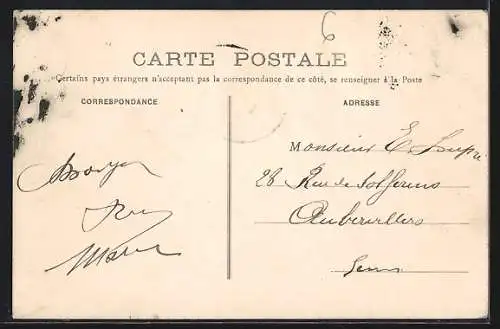 6
CARTE POSTALE
Certains pays étrangers n'acceptant pas la correspondance de ce côté, se renseigner à la Poste
CORRESPONDANCE
ADRESSE
Monsieur E.
28 Rue de Solferino
Aubervilliers
Seine